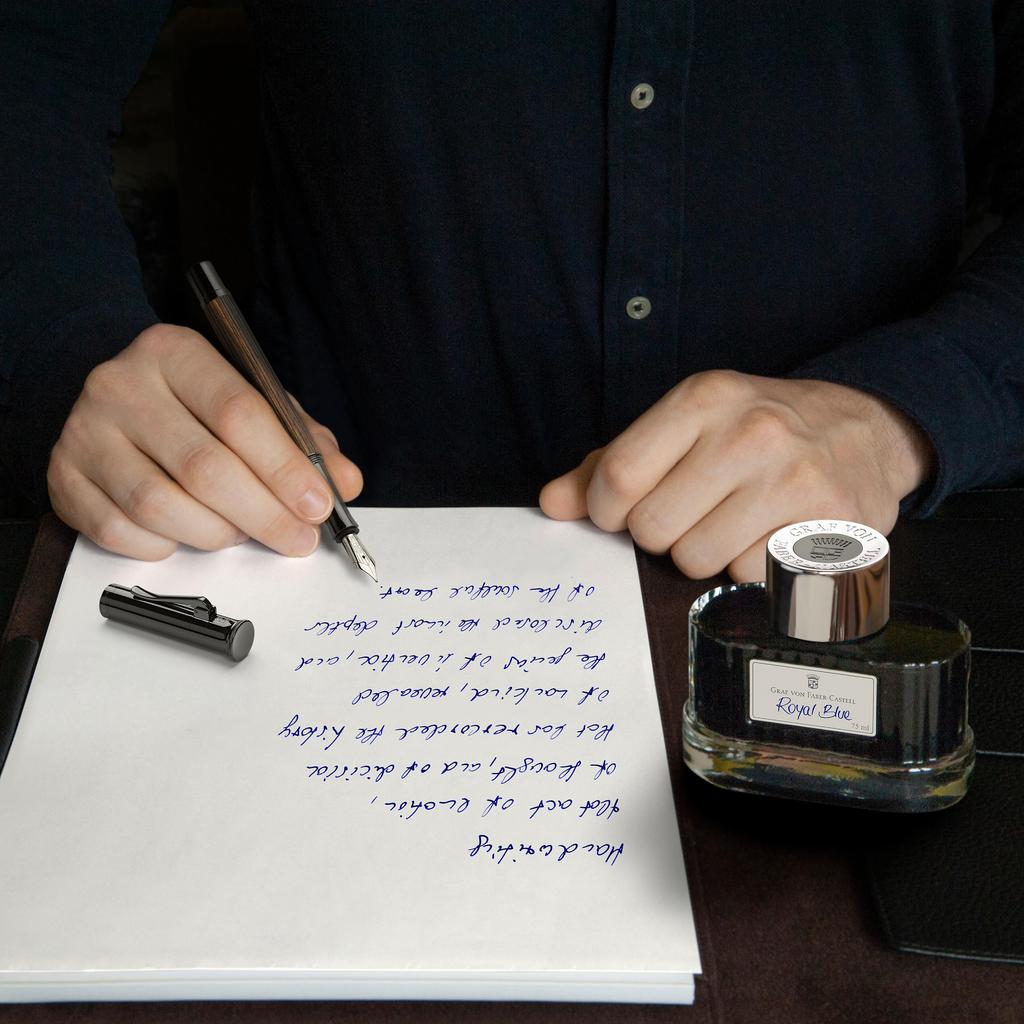 Handwriting
that act of emotion,
of thought, and of decision
that has recorded the history
of mankind, revealed
the genius of invention, and
disclosed the inmost depths
of the soulful heart.
GRAF VON FABER-CASTELL
GRAF VON FABER-CASTELL
Royal Blue
75 ml